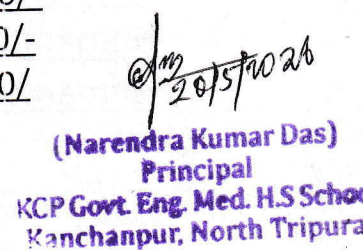 0/-
0/
20/5/2026
(Narendra Kumar Das)
Principal
KCP Govt. Eng. Med. H.S Schoo
Kanchanpur, North Tripura